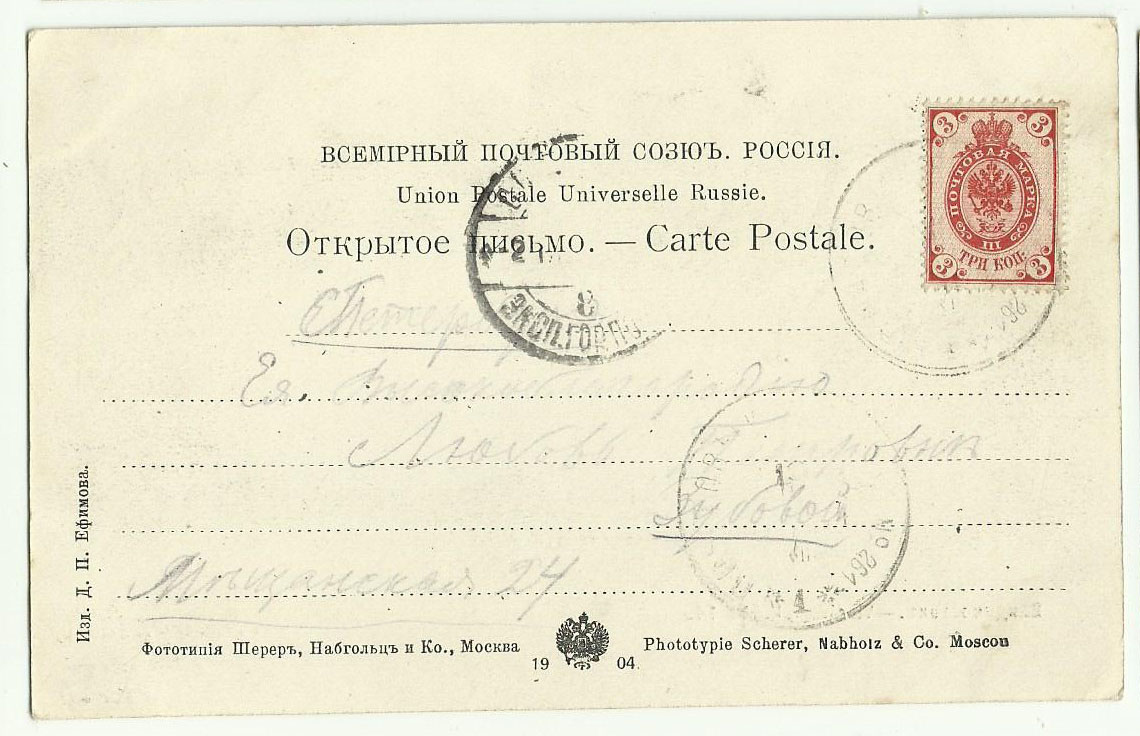 ВСЕМІРНЫЙ ПОЧТОВЫЙ СОЮЗЪ. РОССІЯ.
Union Postale Universelle Russie.
Открытое письмо. — Carte Postale.
3 3
ПОЧТОВАЯ МАРКА
III
ТРИ КОП.
3 3
ЭКСП.ГОР.П
Ея
Любовь
Зубовой
Мѣщанская 24
261
1
1
Изд. Д. П. Ефимова.
Фототипія Шереръ, Набгольцъ и Ко., Москва
19 04.
Phototypie Scherer, Nabholz & Co. Moscou